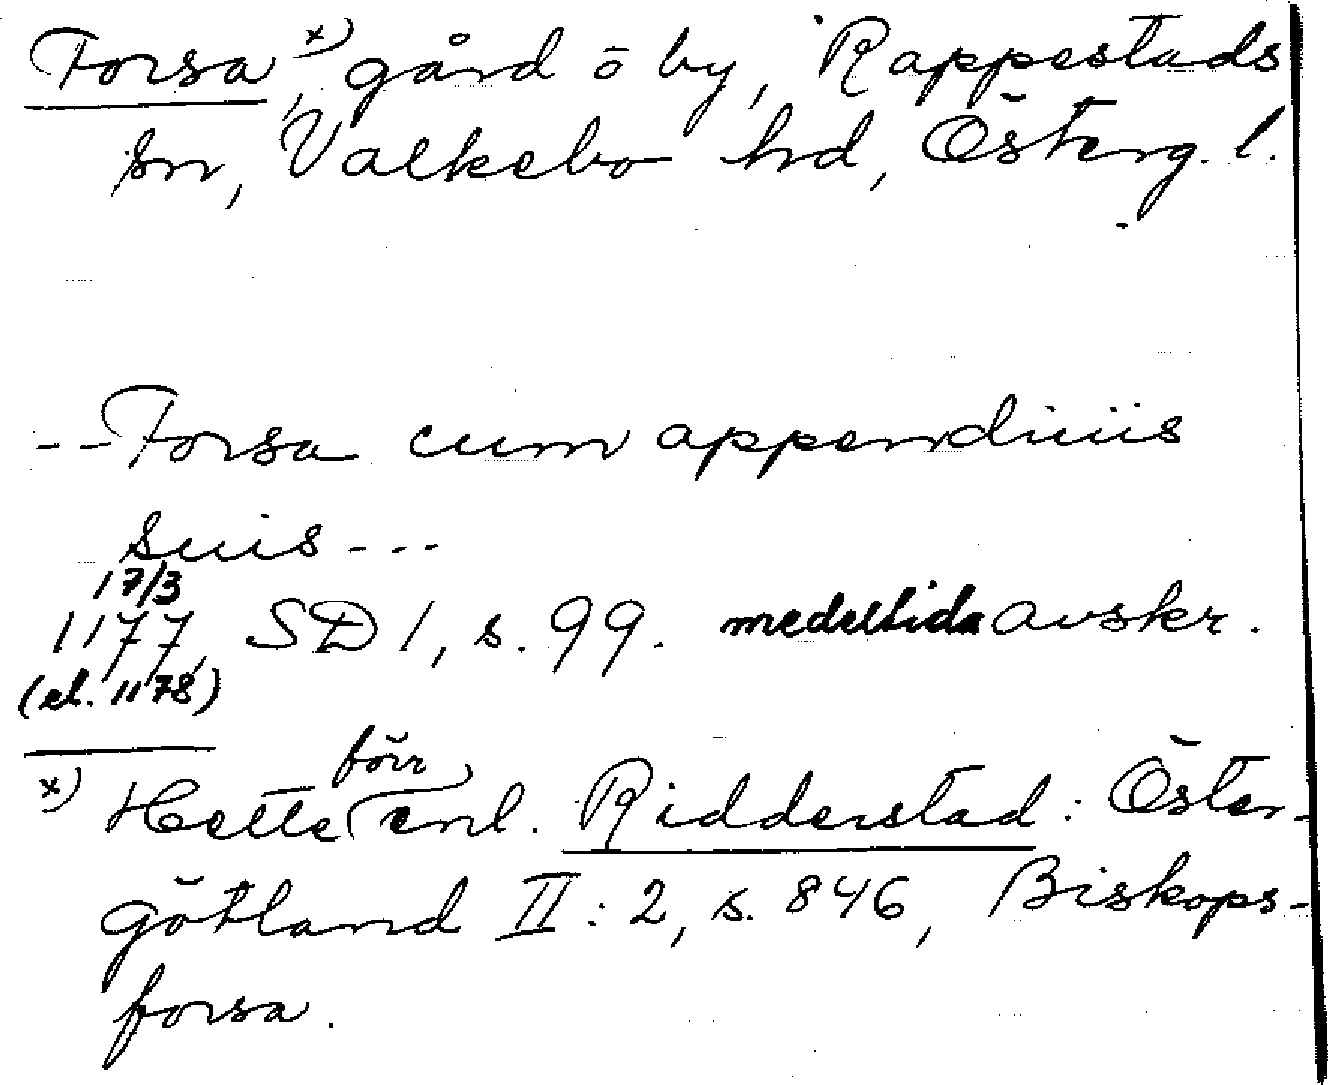 Forsa x), gård o by, Rappestads
sn, Valkebo hd, Österg. l.
-- Forsa cum appendiciis
suis ---
17/3
1177, SD 1, s. 99. medeltida avskr.
(el. 1178)
x) Hette förr enl. Ridderstad: Öster-
götland II: 2, s. 846, Biskops-
forsa.